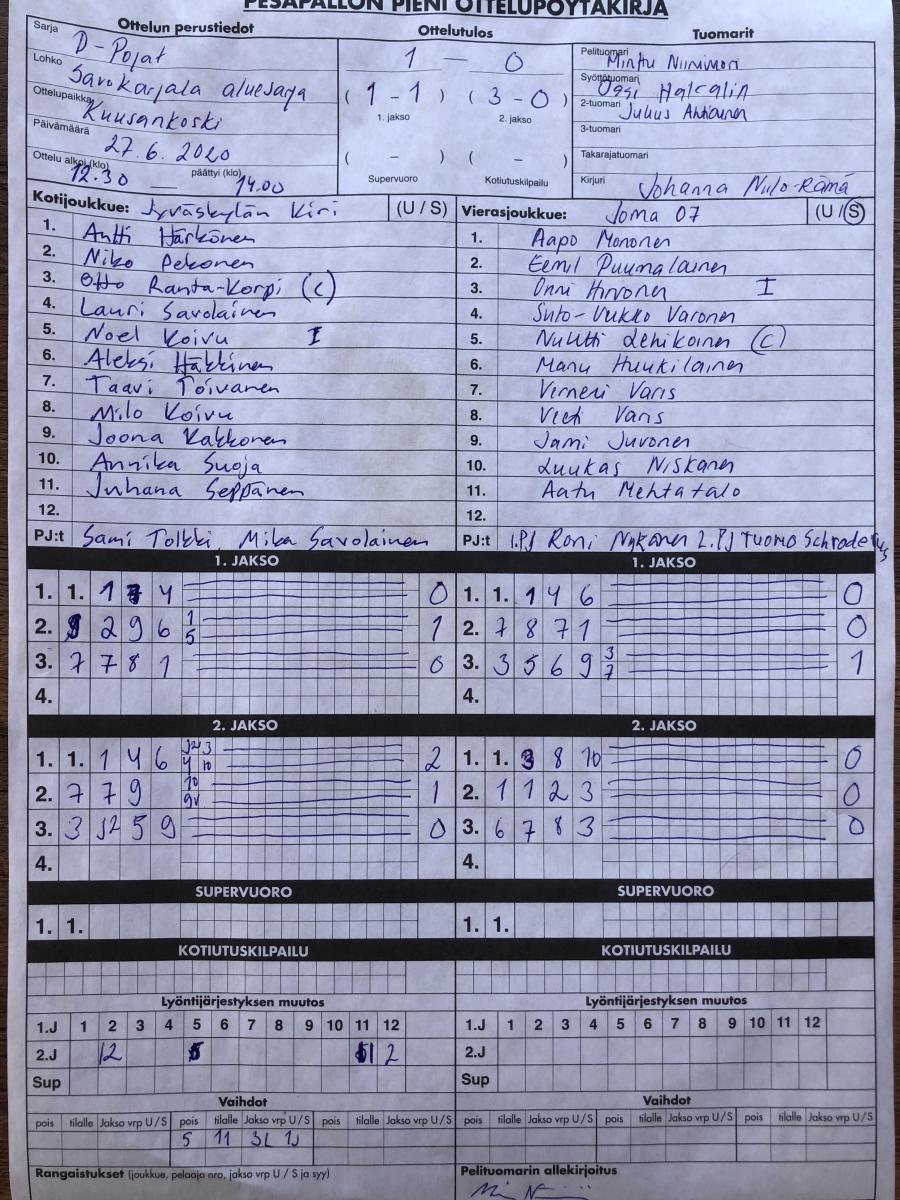 PESÄPALLON PIENI OTTELUPÖYTÄKIRJA
Ottelun perustiedot
Sarja D-Pojat
Lohko Savokarjala aluesarja
Ottelupaikka Kuusankoski
Päivämäärä 27.6.2020
Ottelu alkoi (klo) 12.30 — päättyi (klo) 14.00
Ottelutulos
1 — 0
( 1 - 1 ) ( 3 - 0 )
1. jakso 2. jakso
( - ) ( - )
Supervuoro Kotiutuskilpailu
Tuomarit
Pelituomari Minttu Niinimäri
Syöttötuomari Ossi
2-tuomari Julius
3-tuomari
Takarajatuomari
Kirjuri Johanna Niilo-Rämä
Kotijoukkue: Jyväskylän Kiri (U / S)
1. Antti Härkönen
2. Niko Pekonen
3. Otto Ranta-Korpi (C)
4. Lauri Savolainen
5. Noel Koivu I
6. Aleksi Häkkinen
7. Taavi Toivanen
8. Milo Koivu
9. Joona Kakkonen
10. Annika Suoja
11. Juhana Seppänen
12.
PJ:t Sami Tolkki, Mika Savolainen
Vierasjoukkue: Joma 07 (U / S)
1. Aapo Mononen
2. Eemil Puumalainen
3. Onni Hirvonen I
4. Varonen
5. Nuutti Lehikoinen (C)
6. Manu Huukilainen
7. Verneri Varis
8. Veeti Varis
9. Jami Juvonen
10. Luukas Niskanen
11. Aatu Mehtatalo
12.
PJ:t 1.PJ Roni Nykänen 2.PJ Tuomo Schroderus
1. JAKSO
1. 1. 1 4 0
2. 2 9 6 1 5 1
3. 7 7 8 1 0
4.
1. JAKSO
1. 1. 1 4 6 0
2. 7 8 7 1 0
3. 3 5 6 9 3 7 1
4.
2. JAKSO
1. 1. 1 4 6 J2 3 4 10 2
2. 7 7 9 10 9v 1
3. 3 J2 5 9 0
4.
2. JAKSO
1. 1. 3 8 10 0
2. 1 1 2 3 0
3. 6 7 8 3 0
4.
SUPERVUORO
1. 1.
SUPERVUORO
1. 1.
KOTIUTUSKILPAILU
KOTIUTUSKILPAILU
Lyöntijärjestyksen muutos
1.J 1 2 3 4 5 6 7 8 9 10 11 12
2.J 12 2
Sup
Lyöntijärjestyksen muutos
1.J 1 2 3 4 5 6 7 8 9 10 11 12
2.J
Sup
Vaihdot
pois tilalle Jakso vrp U / S pois tilalle Jakso vrp U / S pois tilalle Jakso vrp U / S
5 11
Vaihdot
pois tilalle Jakso vrp U / S pois tilalle Jakso vrp U / S pois tilalle Jakso vrp U / S
Rangaistukset (joukkue, pelaaja nro, jakso vrp U / S ja syy)
Pelituomarin allekirjoitus